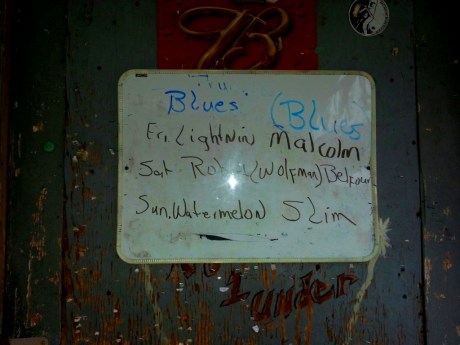 B
Blues (Blues
Fri. Lightnin Malcolm
Sat. (Wolfman) Belfour
Sun. Watermelon Slim
1 under